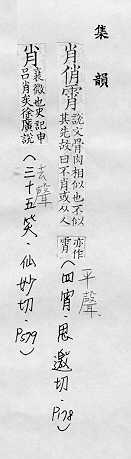 集韻
肖俏霄說文骨肉相似也不似其先故曰不肖或从人亦作霄(四宵·思邀切·P178)平聲
肖衰微也史記申呂肖矣徐廣說(三十五笑·仙妙切·P579)去聲